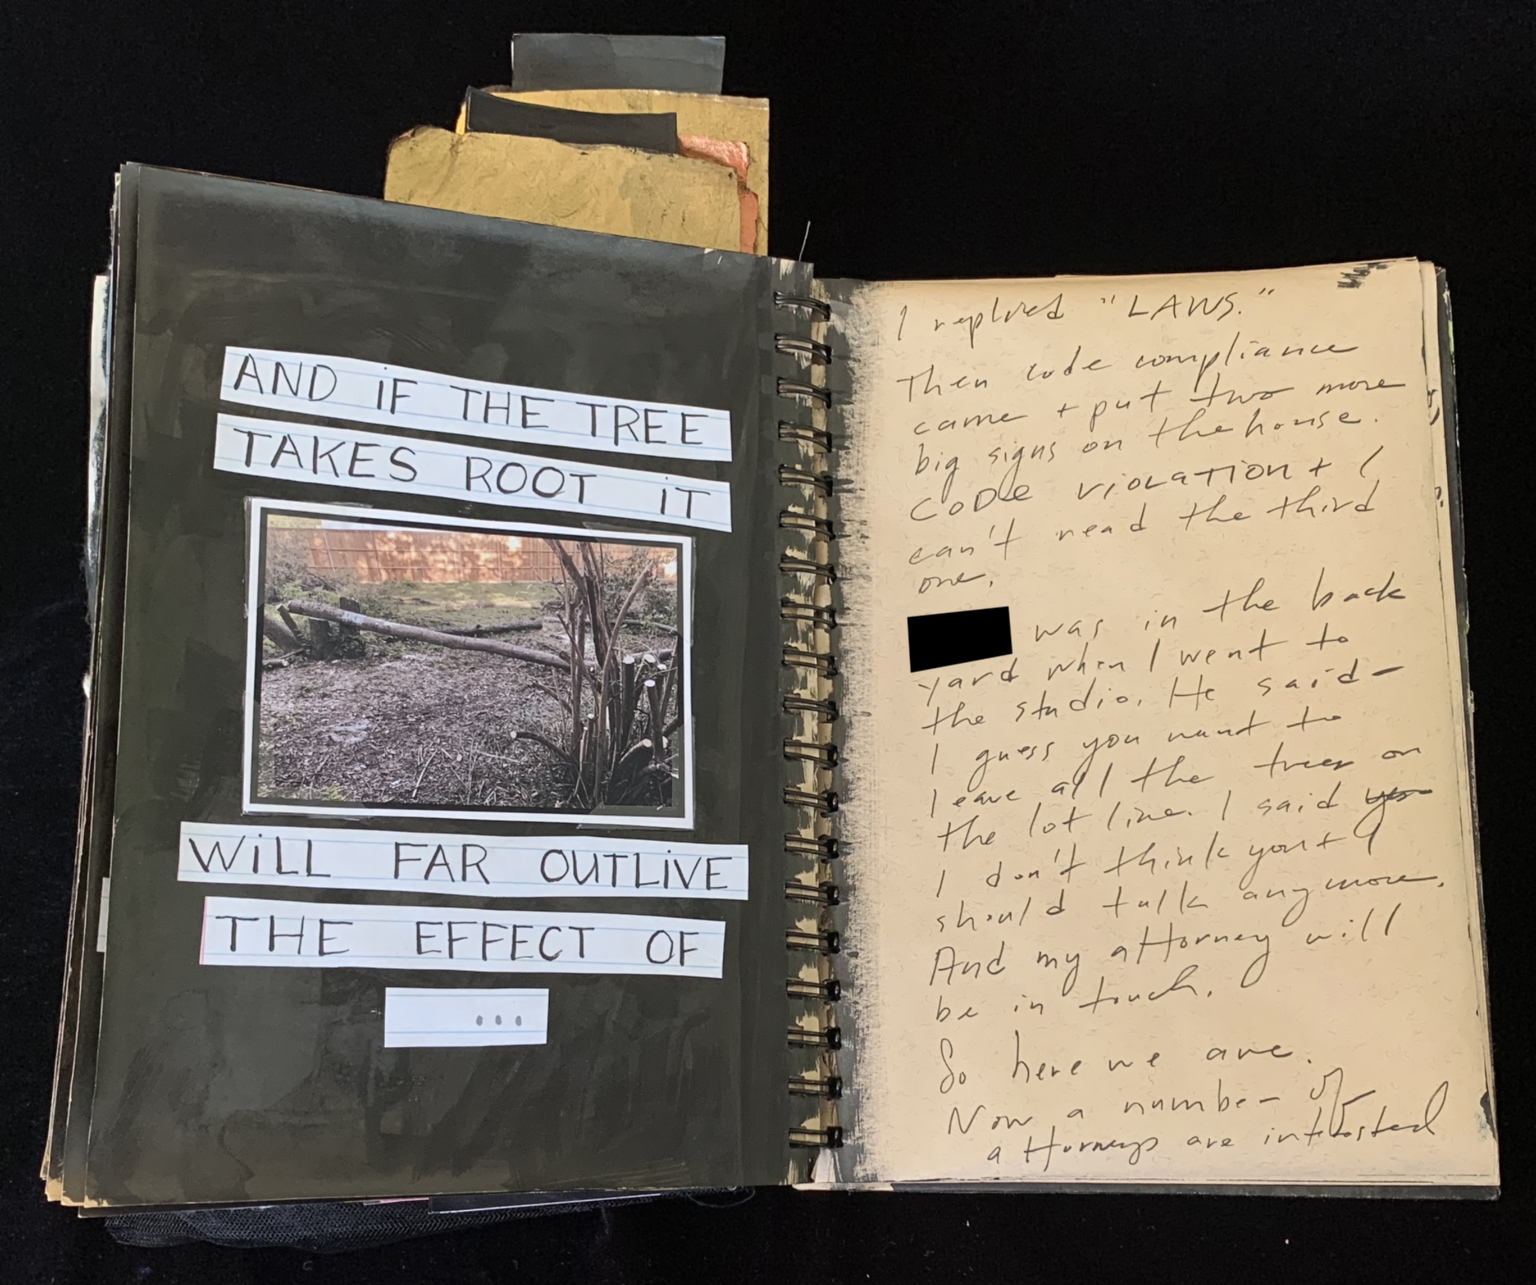 AND iF THE TREE
TAKES ROOT iT
WiLL FAR OUTLiVE
THE EFFECT OF
...
I replied "LAWS."
Then code compliance
came + put two more
big signs on the house.
CODe VIOLATION + I
can't read the third
one.
was in the back
yard when I went to
the studio. He said -
I guess you want to
leave all the trees on
the lot line. I said yes
I don't think you + I
should talk anymore.
And my attorney will
be in touch.
So here we are.
Now a number of
attorneys are interested